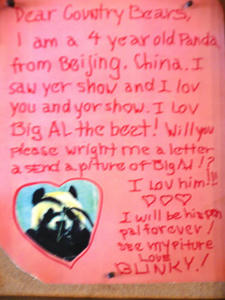 Dear Country Bears,
I am a 4 year old Panda
from Beijing, China. I
saw yer show and I lov
you and yor show. I Lov
Big AL the best! Will you
please wright me a letter
a send a piture of Big Al!?
I Lov him!!!
I will be hiz pen
pal forever!
see my piture
Love
BLINKY!